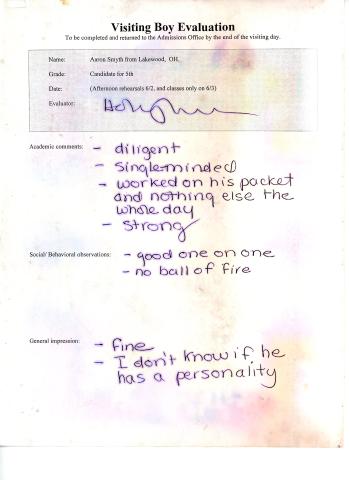 Visiting Boy Evaluation
To be completed and returned to the Admissions Office by the end of the visiting day.
Name: Aaron Smyth from Lakewood, OH,
Grade: Candidate for 5th
Date: (Afternoon rehearsals 6/2, and classes only on 6/3)
Evaluator:
Academic comments: - diligent
- singleminded
- worked on his packet
and nothing else the
whole day
- strong
Social/ Behavioral observations: - good one on one
- no ball of fire
General impression: - fine
- I don't know if he
has a personality